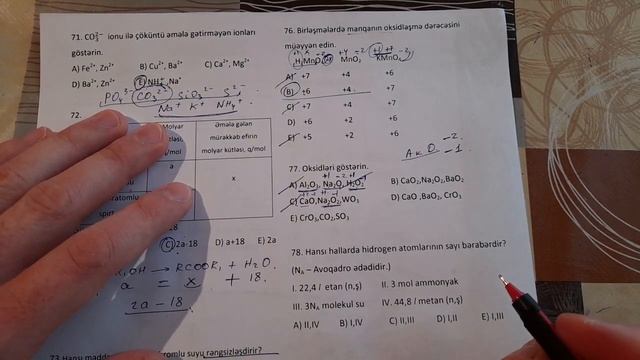 71. CO₃²⁻ ionu ilə çöküntü əmələ gətirməyən ionları
göstərin.
A) Fe²⁺, Zn²⁺ B) Cu²⁺, Ba²⁺ C) Ca²⁺, Mg²⁺
D) Ba²⁺, Zn²⁺ E) NH₄⁺, Na⁺
PO₄³⁻ CO₃²⁻ SiO₃²⁻ S²⁻
Na⁺ K⁺ NH₄⁺
72.
Molyar
kütləsi,
q/mol
Əmələ gələn
mürəkkəb efirin
molyar kütləsi, q/mol
a
x
C) 2a-18 D) a+18 E) 2a
OH → RCOOR₁ + H₂O
a = x + 18.
2a-18
73.Hansı
suyu rəngsizləşdirir?
76. Birləşmələrdə manqanın oksidləşmə dərəcəsini
müəyyən edin.
+1 x -2 +4 -2 +1 +7 -2
H₂MnO₄ MnO₂ KMnO₄
A) +7 +4 +6
B) +6 +4 +7
C) +7 +4 +4
D) +6 +2 +6
E) +5 +2 +6
77. Oksidləri göstərin.
-2
-1
A) Al₂O₃, Na₂O, H₂O₂ B) CaO₂,Na₂O₂,BaO₂
C) CaO,Na₂O₂,WO₃ D) CaO ,BaO₂, CrO₃
E) CrO₃,CO₂,SO₃
78. Hansı hallarda hidrogen atomlarının sayı bərabərdir?
(Nᴀ – Avoqadro ədədidir.)
I. 22,4 l etan (n,ş) II. 3 mol ammonyak
III. 3Nᴀ molekul su IV. 44,8 l metan (n,ş)
A) II,IV B) I,IV C) II,III D) I,II E) I,III